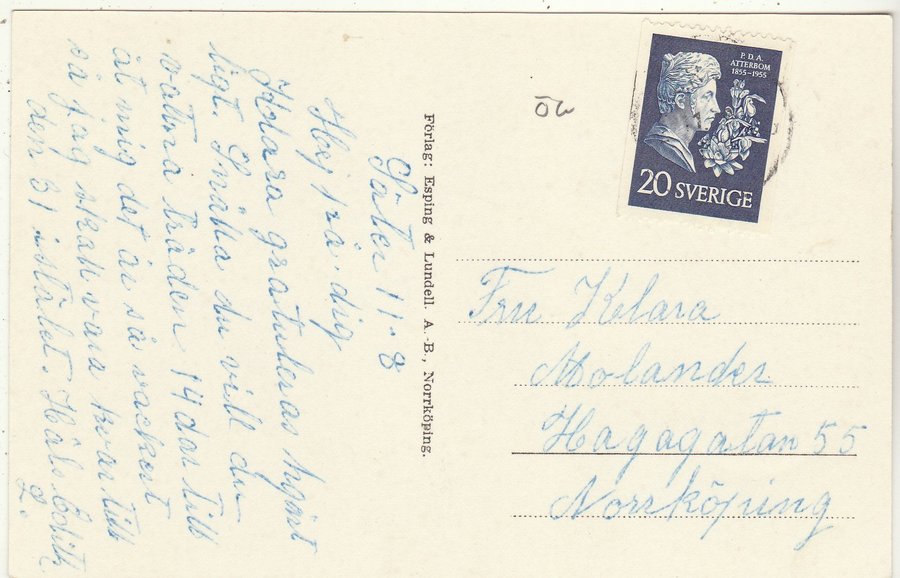 Säter 11-8
Hej på dig
Klara gratuleras hjärt
ligt. Snälla du vill du
vattna träden 14 dar till
åt mig det är så vackert
så jag skall vara kvar till
den 31 istället. Häls. Edith
L.
Förlag: Esping & Lundell. A.-B., Norrköping.
öw
P.D.A.
ATTERBOM
1855-1955
20 SVERIGE
Fru Klara
Molander
Hagagatan 55
Norrköping